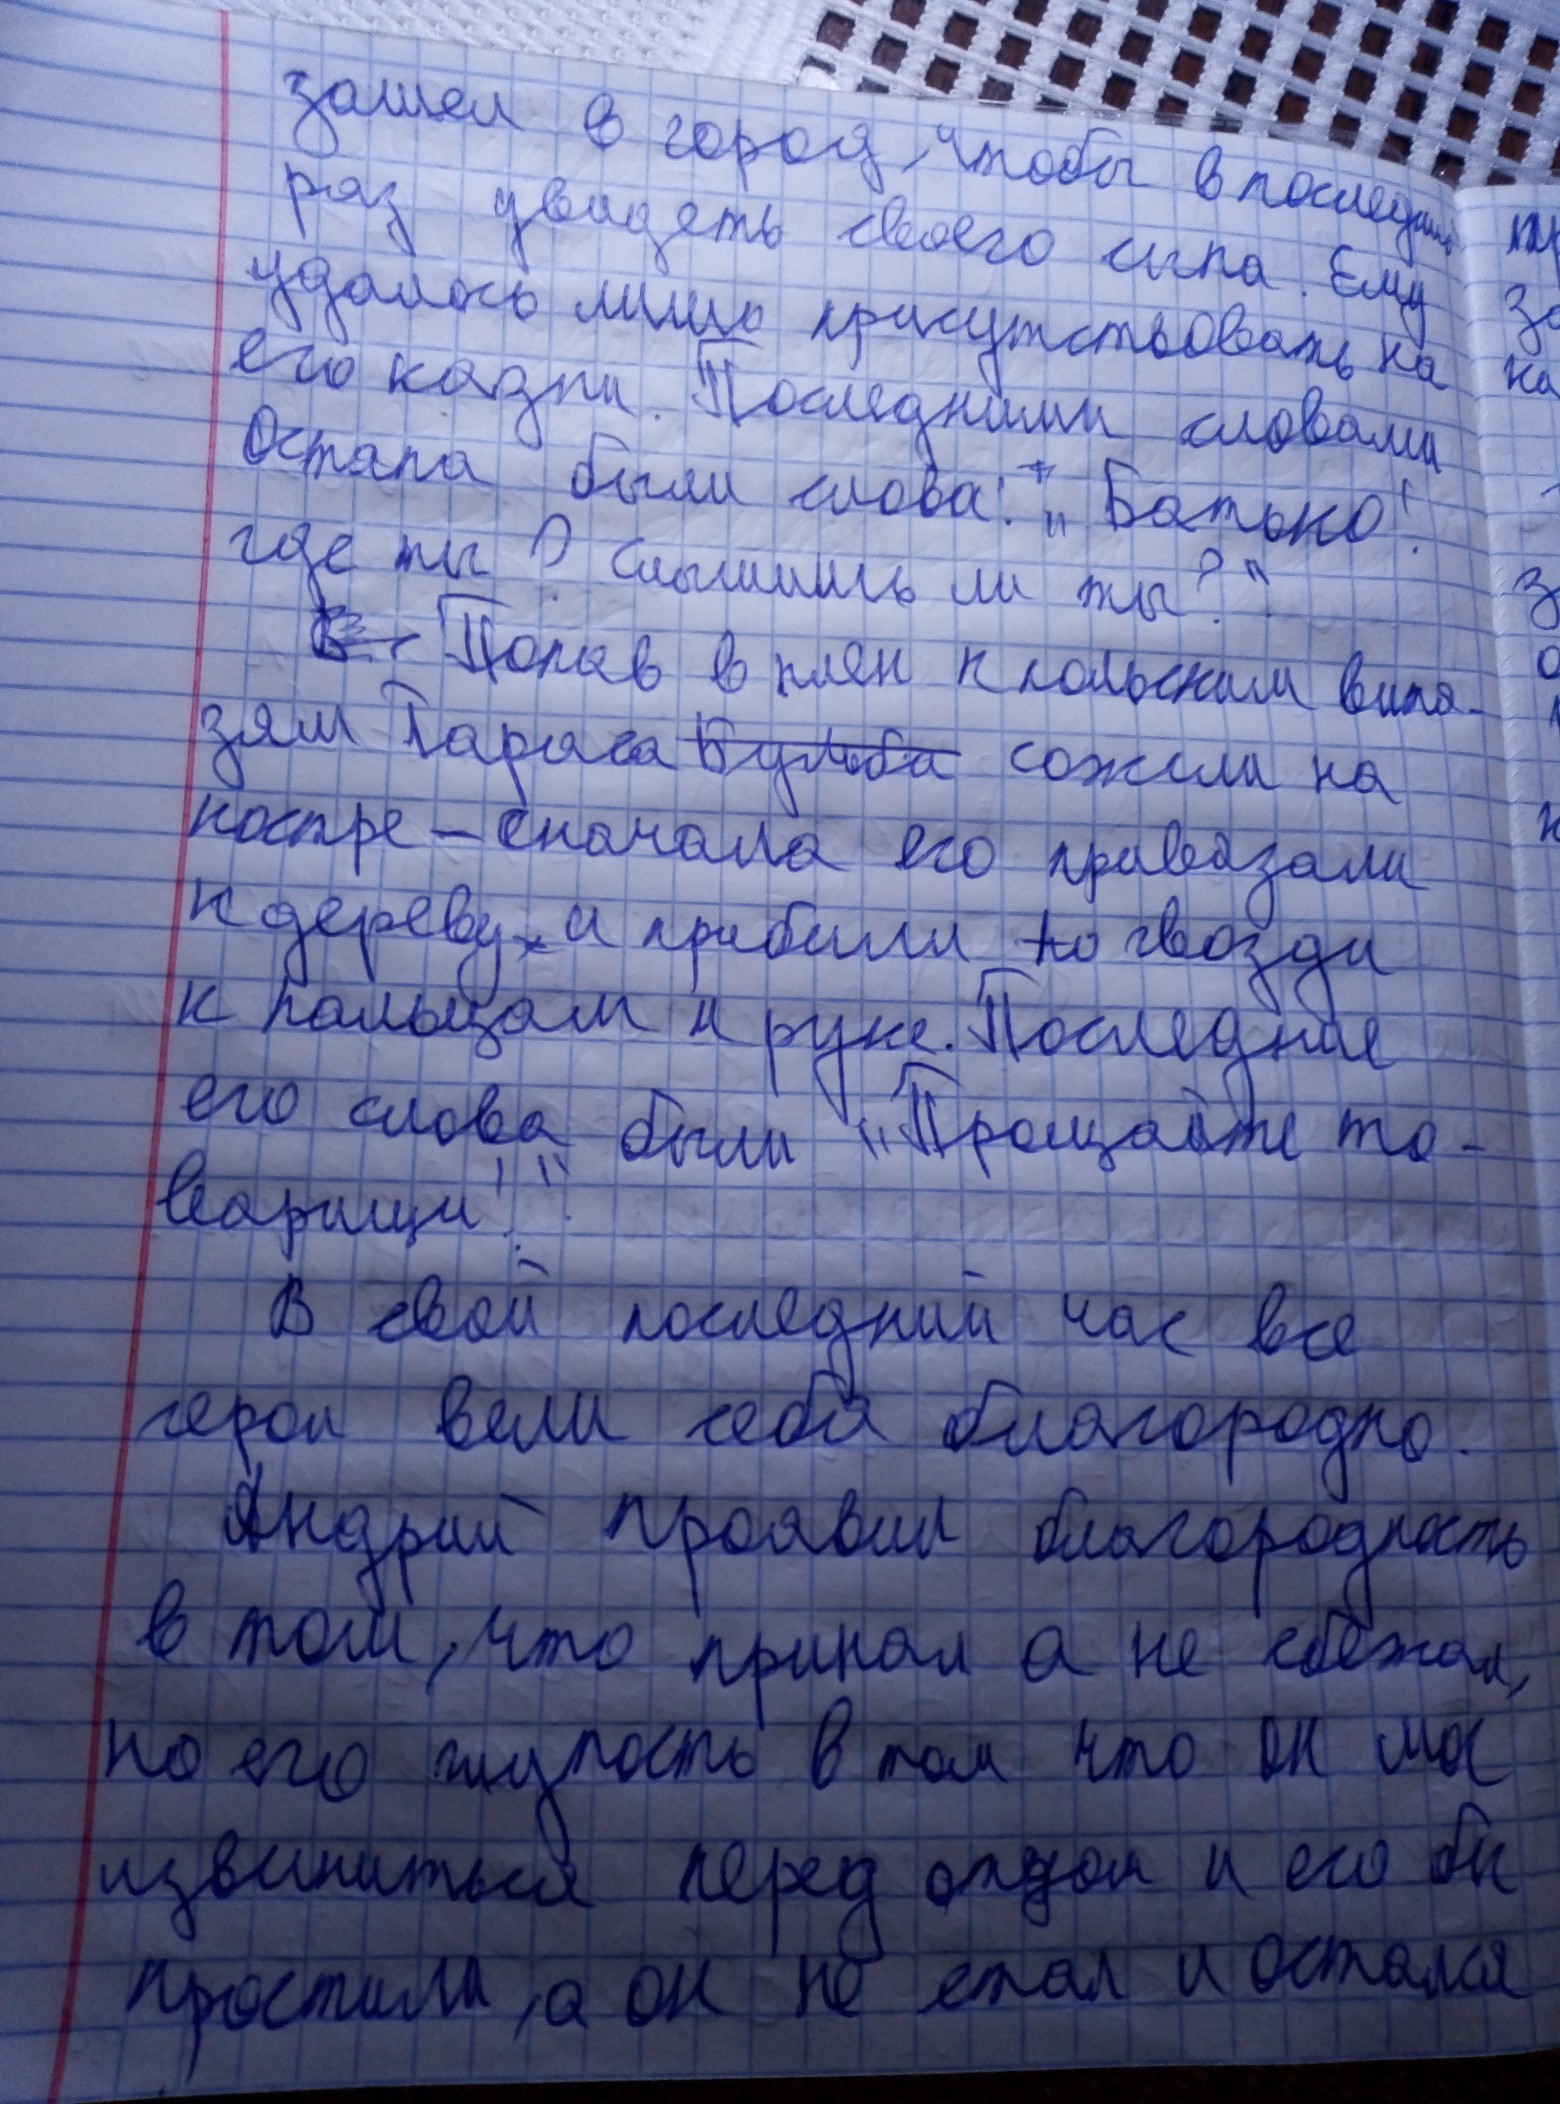 зашел в город, чтобы в последний
раз увидеть своего сына. Ему
удалось лишь присутствовать на
его казни. Последними словами
Остапа были слова: „Батько!
где ты? Слышишь ли ты?"
Попав в плен к польским витя-
зям Тараса Бульба сожгли на
костре – сначала его привязали
к дереву, и прибили гвозди
к пальцам и руке. Последние
его слова были "Прощайте то-
варищи!"
В свой последний час все
герои вели себя благородно.
Андрий проявил благородность
в том, что принял а не сбежал,
но его глупость в том что он мог
извиниться перед отцом и его бы
простили, а он не стал и остался
тр
за
на